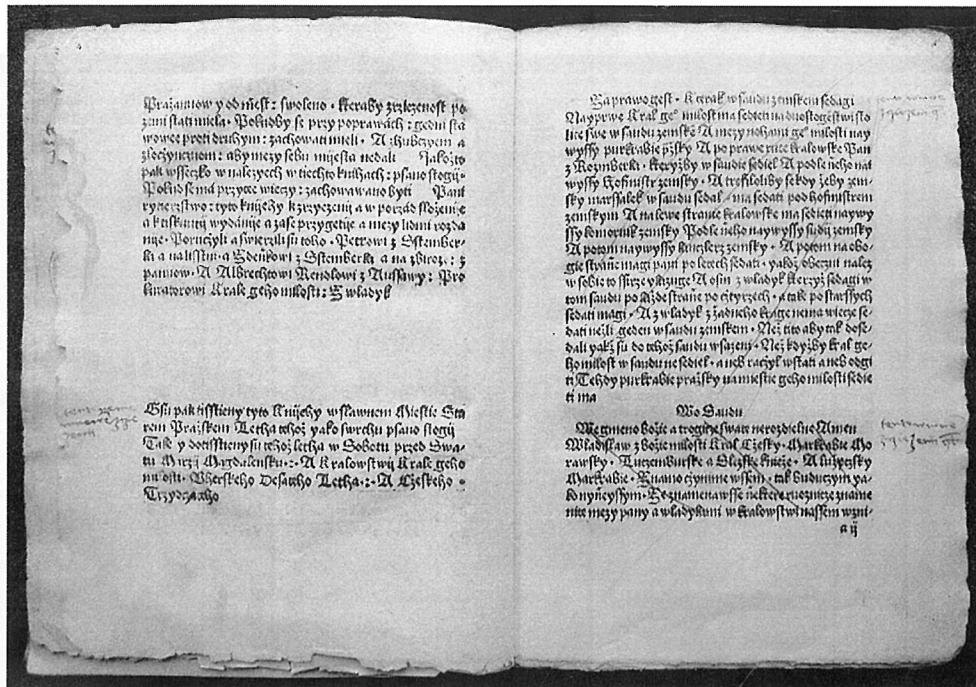 Pražaniow y od miest: swoleno · kteraby zrzizenost po
zemi stati miela · Pokudby se przy poprawách: gedni sta
wowee proti druhym: zachowati mieli · A zhubczym a
zloczynczom: aby mezy sebu mijesta nedali Jakožto
pak wsseczko w nalezych w tiechto knihach: psano stogij ·
Pokud se ma przytee wieczy: zachowawano byti Pani
ryterzstwo: tyto knijehy k zrzyzenij a w porzad složenie
a k tisknutij wydanije a zase przygetije a mezy lidmi rozda
nije · Poruczyli a swierzili su toho · Petrowi z Ssternber-
ka a na lisstin · a Zdeńkowi z Sstemberka a na zbiroz: z
panuow · A Albrechtowi Rendlowi z Aussawy: Pro
kuratorowi Krale geho milosti: Z wladyk
Gsu pak tisstieny tyto Knijehy w slawnem Miestie Sta
rem Pražskem Letha tehož yako swrchu psano stogij
Take y dotisstieny su tehož letha w Sobotu przed Swa-
tu Marzij Magdalensku ·:· A Kralowstwij Krale geho
milosti · Vherskeho Desateho Letha ·:· A Czeskeho ·
Trzydczateho
Na prawo gest · Kterak w saudu zemskem sedagi
Nayprwe Kral geho milost ma sedeti na duostogenstwi sto
lice swe w saudu zemske A mezy nohami geho milosti nay
wyssy purkrabie pražsky A po prawe ruce kralowske Pan
z Rozmberka · kteryžby w saudie sediel A podle neho nai
wyssy Hofmistr zemsky · A trefiloliby se kdy žeby zem-
sky marssalek w saudu sedal · ma sedati pod hofmistrem
zemskym A na lewe stranie kralowske ma sedieti naywy
ssy komornik zemsky Podle neho naywyssy sudij zemsky
A potom naywyssy kanczlerz zemsky · A potom na obo-
gie stranie magi pani po letech sedati · yakož obeczni nalez
w sobie to ssirze vkazuge A osm z wladyk kteryž sedagi w
tom saudu po každe stranie po cztyrzech · a tak po starssych
sedati magi · A z wladyk z žadneho krage nema wiecze se-
dati nežli geden w saudu zemskem · Než tito aby tak dose-
dali yakž su do tehož saudu wsazeni · Než kdyžby kral ge-
ho milost w saudu nesediel · a neb raczyl wstati a neb odgi
ti Tehdy purkrabie pražsky na miestie geho milosti sedie
ti ma
Wo Saudu
We gmeno Božie a trogitze swate nerozdielne Amen
Wladislaw z Božie milosti Kral Czesky · Markrabie Mo
rawsky · Luczemburske a Slizske knieže · A lužyczsky
Markrabie · Znamo czynime wssem · tak buduczym ya-
ko nynieyssym · Ze znamenawsse niektere ruoznicze zname
nite mezy pany a wladykami w kralowstwi nassem wzni-
a ij